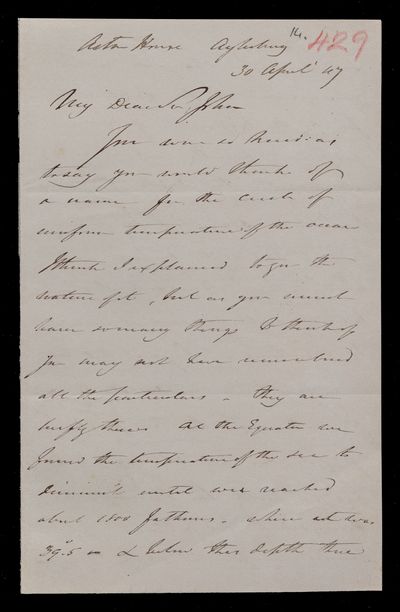 14. 429
Aston House Aylesbury
30 April 47
My Dear Sir John
You were so kind as
to say you would think of
a name for the circle of
uniform temperature of the ocean
I think I explained to you the
nature of it, but as you must
have so many things to think of
you may not have remembered
all the particulars - They are
briefly these. At the Equator we
found the temperature of the sea to
diminish until we reached
about 1200 fathoms - where it was
39°.5 - & below this depth there